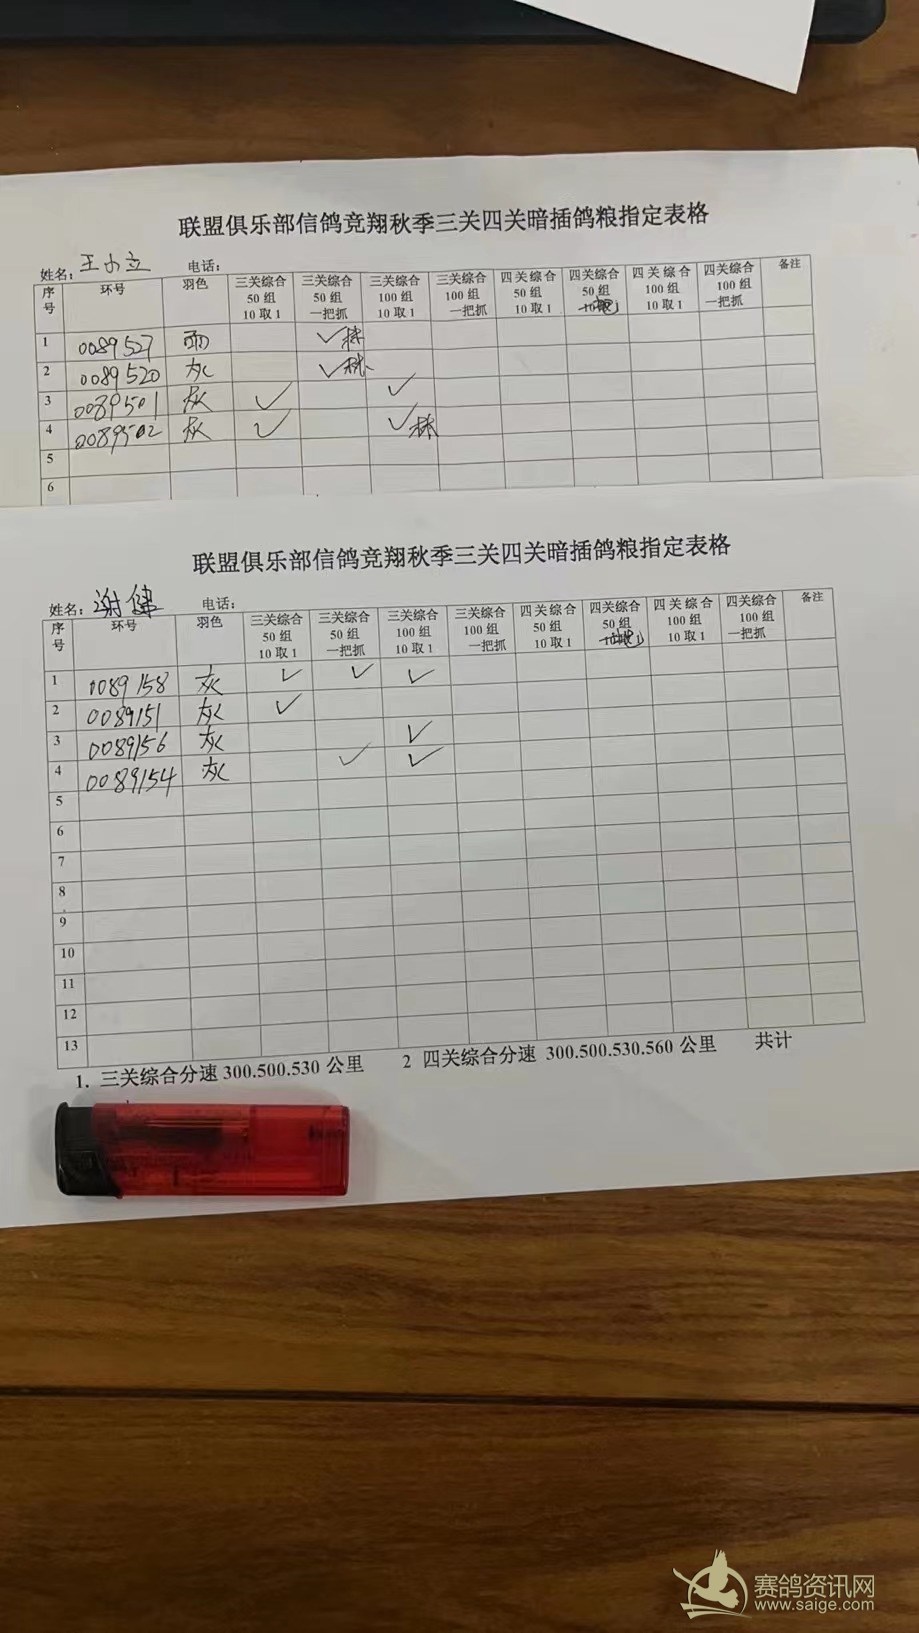 联盟俱乐部信鸽竞翔秋季三关四关暗插鸽粮指定表格
姓名：王小立 电话：
序号 环号 羽色 三关综合50组10取1 三关综合50组一把抓 三关综合100组10取1 三关综合100组一把抓 四关综合50组10取1 四关综合50组 四关综合100组10取1 四关综合100组一把抓 备注
1 0089527 雨 ✓林
2 0089520 灰 ✓林
3 0089501 灰 ✓ ✓
4 0089502 灰 ✓ ✓林
5
6
联盟俱乐部信鸽竞翔秋季三关四关暗插鸽粮指定表格
姓名：谢健 电话：
序号 环号 羽色 三关综合50组10取1 三关综合50组一把抓 三关综合100组10取1 三关综合100组一把抓 四关综合50组10取1 四关综合50组 四关综合100组10取1 四关综合100组一把抓 备注
1 0089158 灰 ✓ ✓ ✓
2 0089151 灰 ✓
3 0089156 灰 ✓
4 0089154 灰 ✓ ✓
5
6
7
8
9
10
11
12
13
1. 三关综合分速 300.500.530 公里 2 四关综合分速 300.500.530.560 公里 共计
赛鸽资讯网
www.saige.com